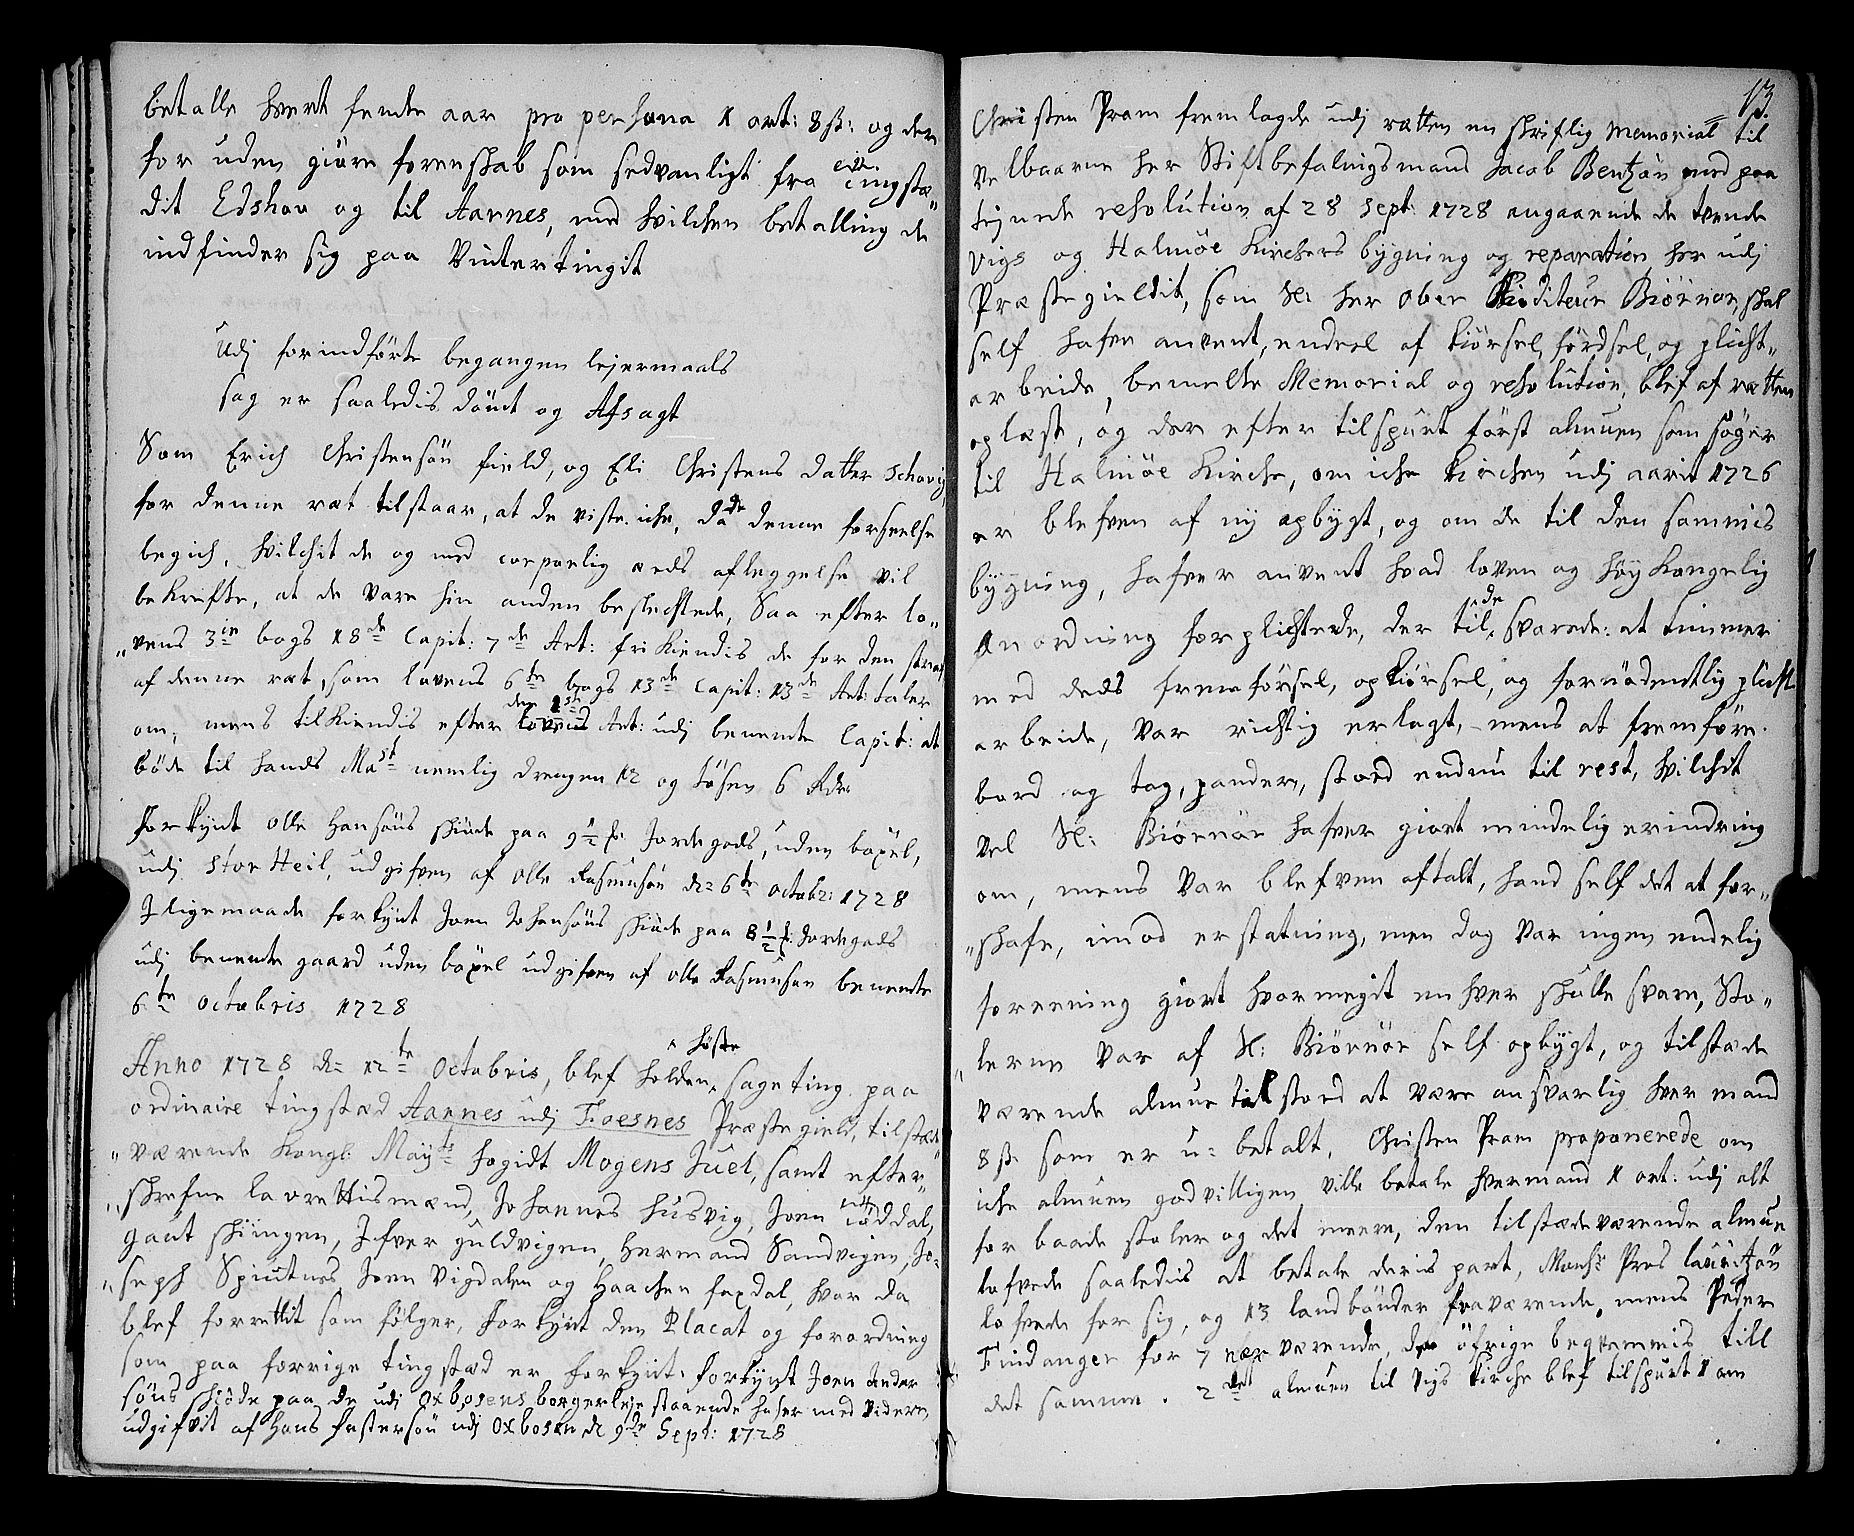 betalle hvert femte aar pro persona 1 ort: 8 sk: og der
for uden giøre forenskab som sedvanligt fra tingstæ„
dit Edshou og til Aarnes, med hvilchen betalling de
indfinder sig paa Vintertingit
Udj forindførte begangen lejermaals
sag er saaledis dømt og Afsagt
Som Erich Christensøn field, og Eli Christens datter
for denne ræt tilstaar, at de viste iche, da de denne forseelse
begich, hvilchit de og med corporlig æeds afleggelse vil
bekrefte, at de vare hin anden beslechtede, Saa efter lo„
„vens 3die bogs 18de Capit: 7de Art: frikiendis de for den straf
af denne ræt, som lovens 6te bogs 13de Capit: 13de Art: taler
om, mens tilkiendis efter den 1ste Art: udj benemte Capit: at
bøde til hands Mast nemlig drengen 12 og tøsen 6 Rdr
Forkynt Olle Hansøns skiøde paa 9½ Jordegods, uden boxel,
udj Stor Heil, udgifven af Olle Rasmusøn d: 6te octobr: 1728
Iligemaade forkynt Joen Johansøns skiøde paa 8½ Jordegods
udj benemte gaard uden boxel udgifven af Olle Rasmusøn benemte
6te octobris 1728
Anno 1728 d: 12te Octobris, blef holden høste sageting paa
ordinaire tingstæd Aarnes udj Foesnes Præstegield, tilstæde
„værende Kongl: Mayts fogidt Mogens Juel, samt efter„
„skrefne lavrettismænd, Johannes Husvig, Joen
gaut skiingen, Ifver guldvigen, Hermand Sandvigen, Jo„
„seph Spiutnes Joen Vigdalen og Haachen faxdal, hvor da
blef forrettit som følger, Forkynt den Placat og forordning
som paa forrige tingstæd er forkynt. Forkynt Joen Ander
søns skiøde paa de udj Oxbosens borgerleje staaende huser med Videre,
udgifvit af Hans Pedersøn udj Oxbosen d: 9de Sept: 1728
13.
Christen Pram fremlagde udj rætten en skriftlig Memorial til
Velbaarne her Stiftbefalingsmand Jacob Bentzøn med paa
tejnede resolution af 28 Sept: 1728 angaaende de tvende
Vigs og Halmøe Kirchers bygning og reparation her udj
Præstegieldit, som Sl: her Ober Auditeur Biørnør, skal
self hafve anvent, endeel af kiørsel, førdsel, og plicht„
arbeide, bemelte Memorial og resolution, blef af rætten
oplæst, og der efter tilspurt først almuen som søger
til Halmøe Kirche, om iche kirchen udj aarit 1726
er blefven af ny opbygt, og om de til den sammes
bygning, hafver anvent hvad loven og høykongelig
Anordning forplichtede, der til de svarede: at timmer
med deds fremførsel, opkiørsel, og fornødentlig plicht
arbeide, var richtig erlagt, mens at fremføre
bord og tag, pander, stoed endnu til rest, hvilchit
vel Sl: Biørnør hafver giort mindelig erindring
om, mens var blefven aftalt, hand self det at for„
„skafe, imod erstatning, men dog var ingen endelig
foreening giort hvormegit en hver skulle svare, Sto„
„lerne var af Sl: Biørnør self opbygt, og tilstæde
værende almue tilstoed at være ansvarlig hver mand
8 sk som er u: betalt, Christen Pram proponerede om
iche almuen godvilligen ville betale hvermand 1 ort: udj alt
for baade stoler og det meere, den tilstædeværende almue
lofvede saaledis at betale deris part, Monsr Pros lauritzøn
lofvede for sig, og 13 landbønder fraværende, mens Peder
Findanger for 7 nærværende, de øfrige beqvemmis till
det samme. 2det almuen til Vigs kirche blef tilspurt om